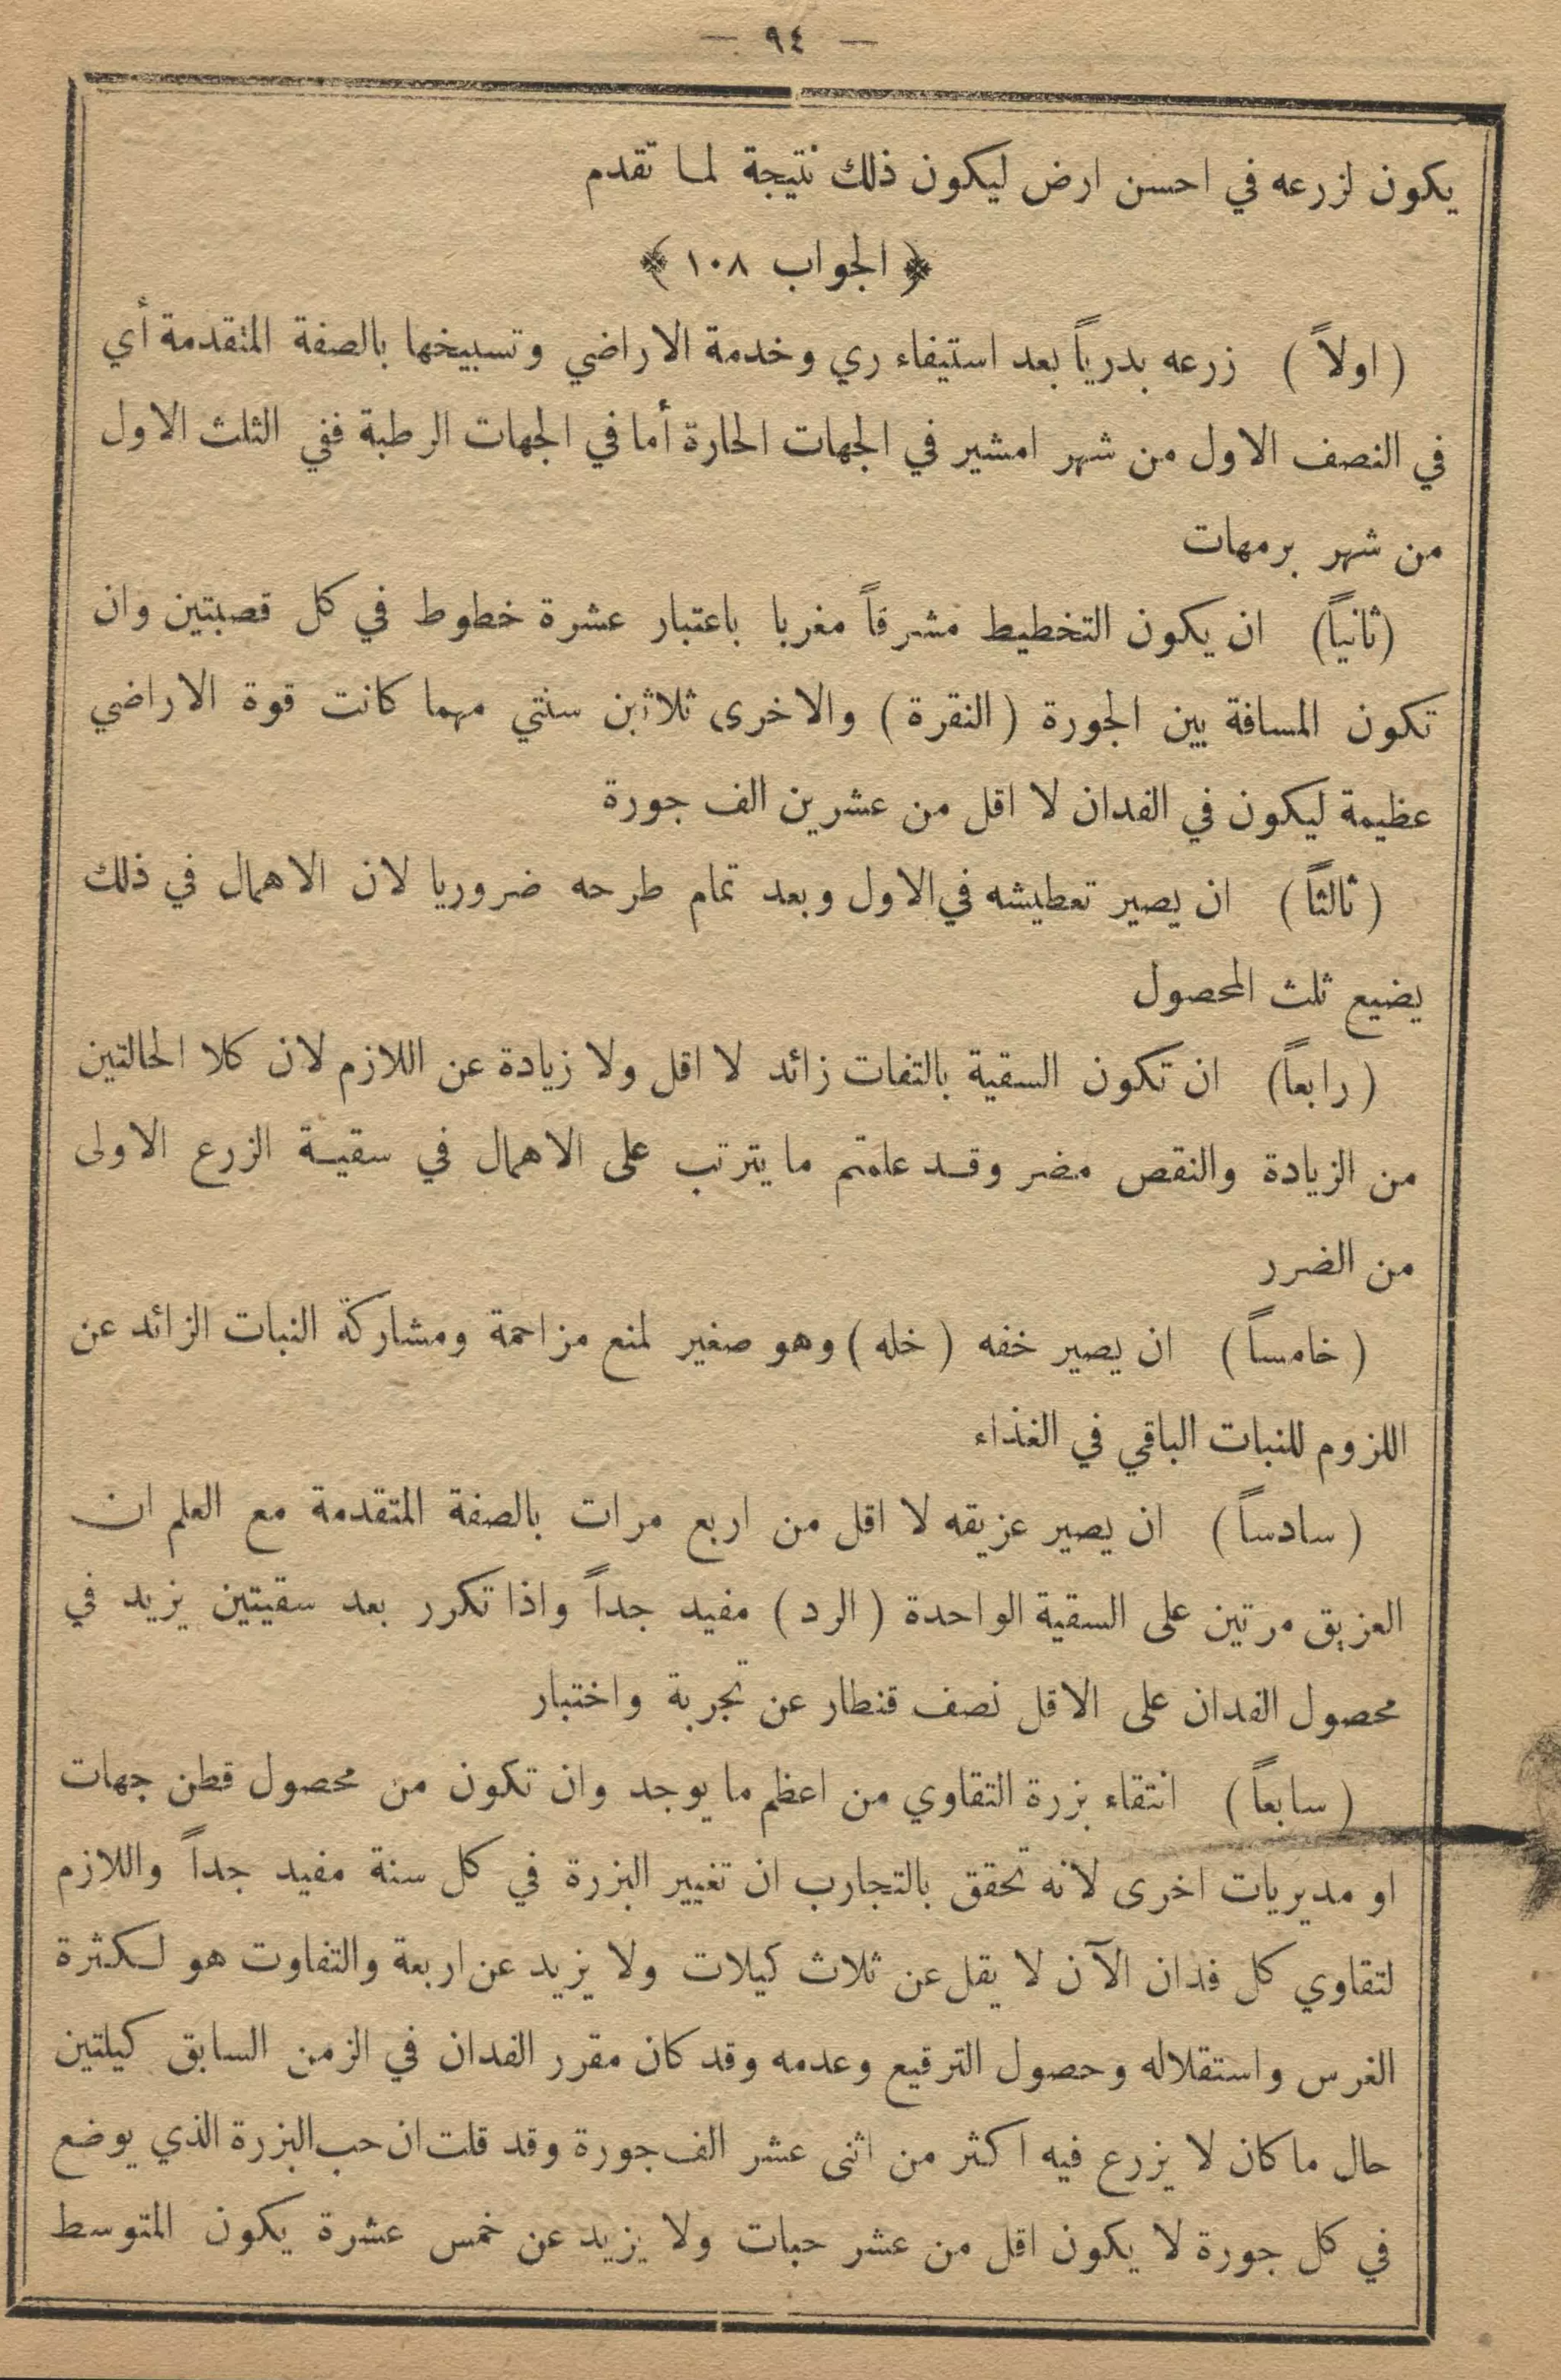 — ٩٤ —
يكون لزرعه في احسن ارض ليكون ذلك نتيجة لما تقدم
﴿ الجواب ١٠٨ ﴾
( اولاً ) زرعه بدرياً بعد استيفاء ري وخدمة الاراضي وتسبيخها بالصفة المتقدمة أي
في النصف الاول من شهر امشير في الجهات الحارة أما في الجهات الرطبة ففي الثلث الاول
من شهر برمهات
(ثانياً) ان يكون التخطيط مشرقاً مغربا باعتبار عشرة خطوط في كل قصبتين وان
تكون المسافة بين الجورة ( النقرة ) والاخرى ثلاثين سنتي مهما كانت قوة الاراضي
عظيمة ليكون في الفدان لا اقل من عشرين الف جورة
( ثالثاً ) ان يصير تعطيشه في الاول وبعد تمام طرحه ضروريا لان الاهمال في ذلك
يضيع ثلث المحصول
( رابعاً ) ان تكون السقية بالتفات زائد لا اقل ولا زيادة عن اللازم لان كلا الحالتين
من الزيادة والنقص مضر وقد علمتم ما يترتب على الاهمال في سقية الزرع الاولى
من الضرر
( خامساً ) ان يصير خفه ( خله ) وهو صغير لمنع مزاحمة ومشاركة النبات الزائد عن
اللزوم للنبات الباقي في الغذاء
( سادساً ) ان يصير عزيقه لا اقل من اربع مرات بالصفة المتقدمة مع العلم ان
العزيق مرتين على السقية الواحدة ( الرد ) مفيد جداً واذا تكرر بعد سقيتين يزيد في
محصول الفدان على الاقل نصف قنطار عن تجربة واختبار
( سابعاً ) انتقاء بزرة التقاوي من اعظم ما يوجد وان تكون من محصول قطن جهات
او مديريات اخرى لانه تحقق بالتجارب ان تغيير البزرة في كل سنة مفيد جداً واللازم
لتقاوي كل فدان الآن لا يقل عن ثلاث كيلات ولا يزيد عن اربعة والتفاوت هو لكثرة
الغرس واستقلاله وحصول الترقيع وعدمه وقد كان مقرر الفدان في الزمن السابق كيلتين
حال ما كان لا يزرع فيه اكثر من اثنى عشر الف جورة وقد قلت ان حب البزرة الذي يوضع
في كل جورة لا يكون اقل من عشر حبات ولا يزيد عن خمس عشرة يكون المتوسط